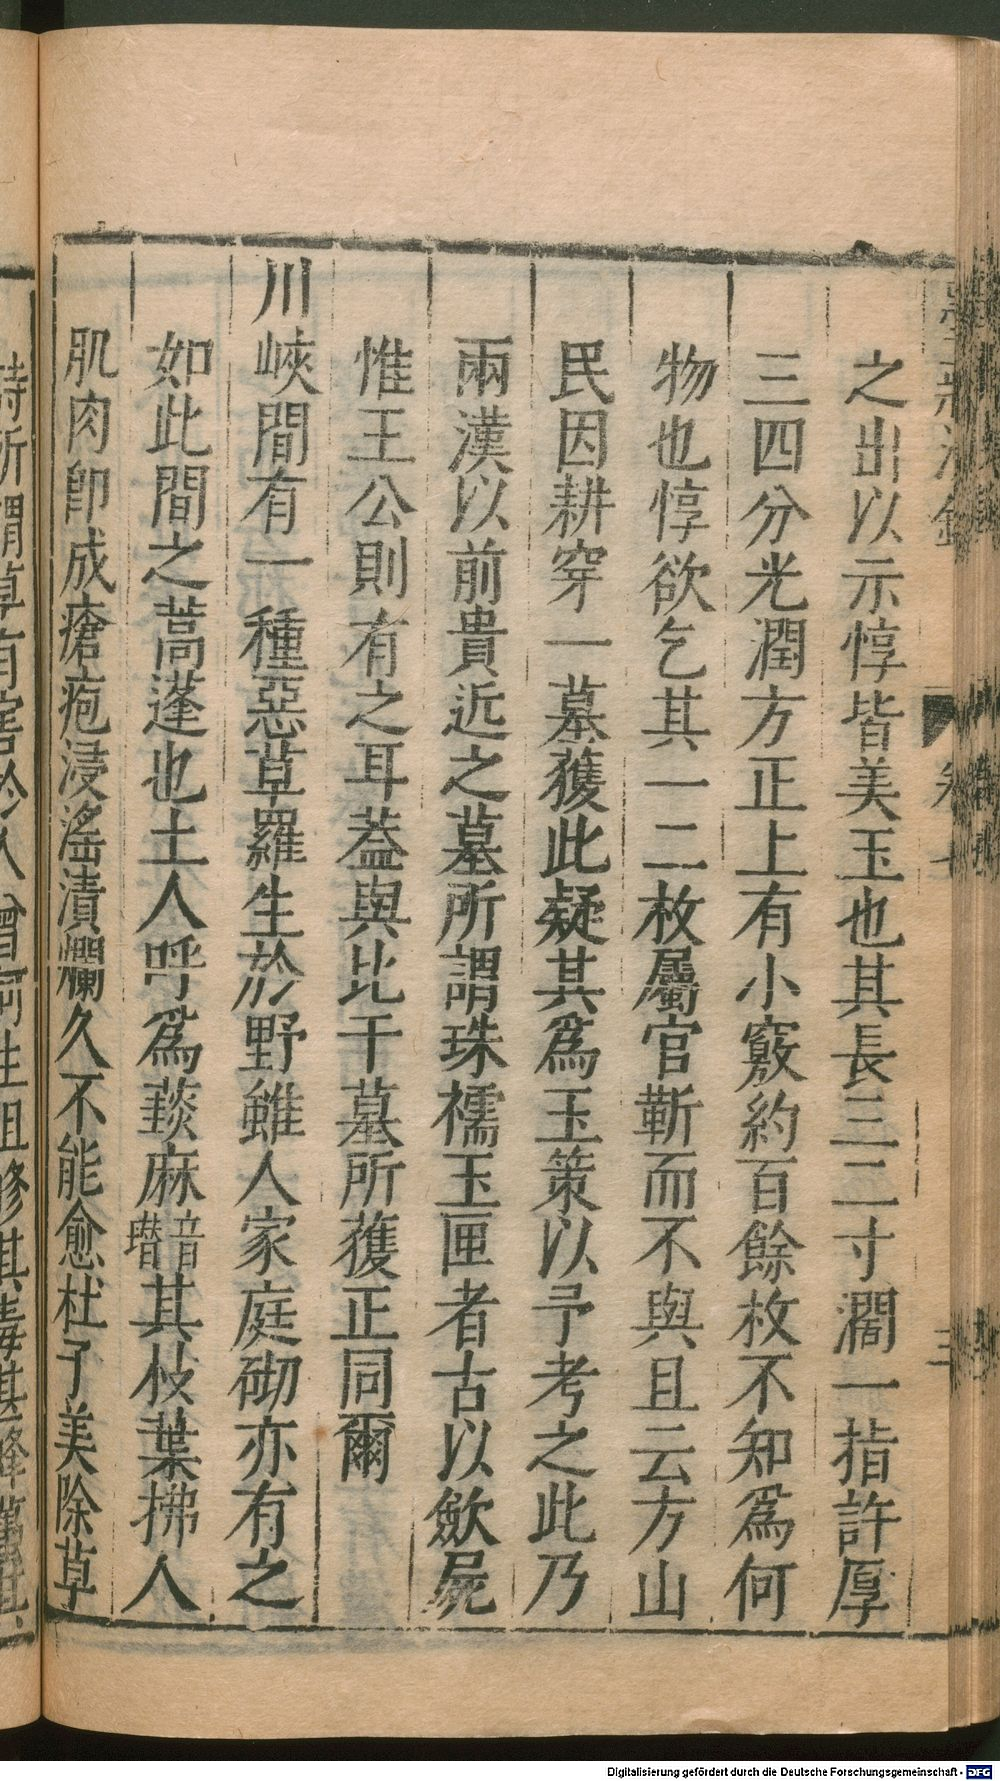 之出以示惇皆美玉也其長三二寸濶一指許厚
三四分光潤方正上有小竅約百餘枚不知爲何
物也惇欲乞其一二枚屬官靳而不與且云方山
民因耕穿一墓獲此疑其爲玉策以予考之此乃
兩漢以前貴近之墓所謂珠襦玉匣者古以斂屍
惟王公則有之耳葢與比干墓所獲正同爾
川峽間有一種惡草羅生於野雖人家庭砌亦有之
如此間之蒿蓬也土人呼爲蕁麻音㬱其枝葉拂人
肌肉卽成瘡疱浸淫漬爛久不能愈杜子美除草
詩所謂草有害於人曾何生阻修其毒甚蜂蠆
卷七
三
Digitalisierung gefördert durch die Deutsche Forschungsgemeinschaft - DFG